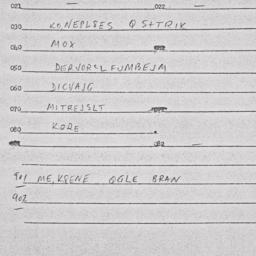 021 — 022 —
030 KONEPLSES QS+TRIK
040 MOX
050 DERVORCL FUMBEJM
060 DICVAJG
070 MITREJSLT
080 KORE
082 —
901 ME, KSENE OGLE BRAN
902